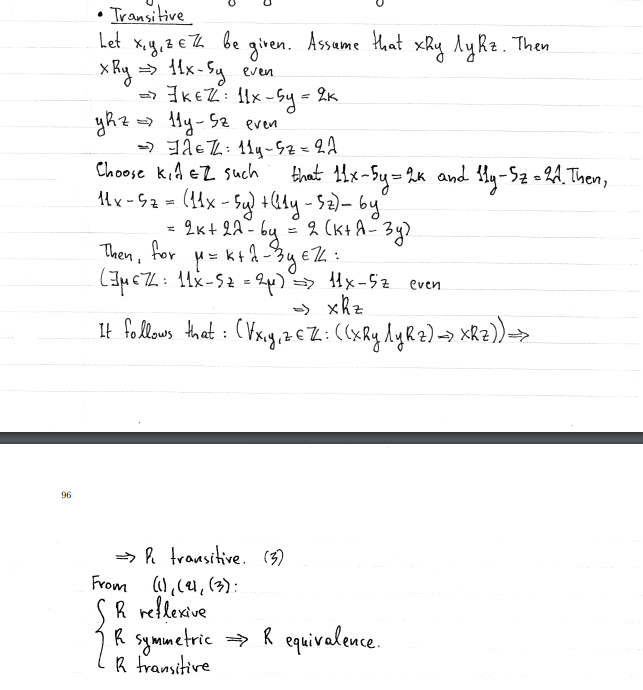 • Transitive
Let x,y,z ∈ ℤ be given. Assume that xRy ∧ yRz. Then
xRy ⇒ 11x-5y even
⇒ ∃κ∈ℤ: 11x-5y = 2κ
yRz ⇒ 11y-5z even
⇒ ∃λ∈ℤ: 11y-5z = 2λ
Choose κ,λ ∈ ℤ such that 11x-5y=2κ and 11y-5z=2λ. Then,
11x-5z = (11x-5y)+(11y-5z)-6y
= 2κ+2λ-6y = 2(κ+λ-3y)
Then, for μ=κ+λ-3y∈ℤ:
(∃μ∈ℤ: 11x-5z=2μ) ⇒ 11x-5z even
⇒ xRz
It follows that: (∀x,y,z∈ℤ: ((xRy ∧ yRz) ⇒ xRz)) ⇒
96
⇒ R transitive. (3)
From (1),(2),(3):
{ R reflexive
R symmetric ⇒ R equivalence.
R transitive